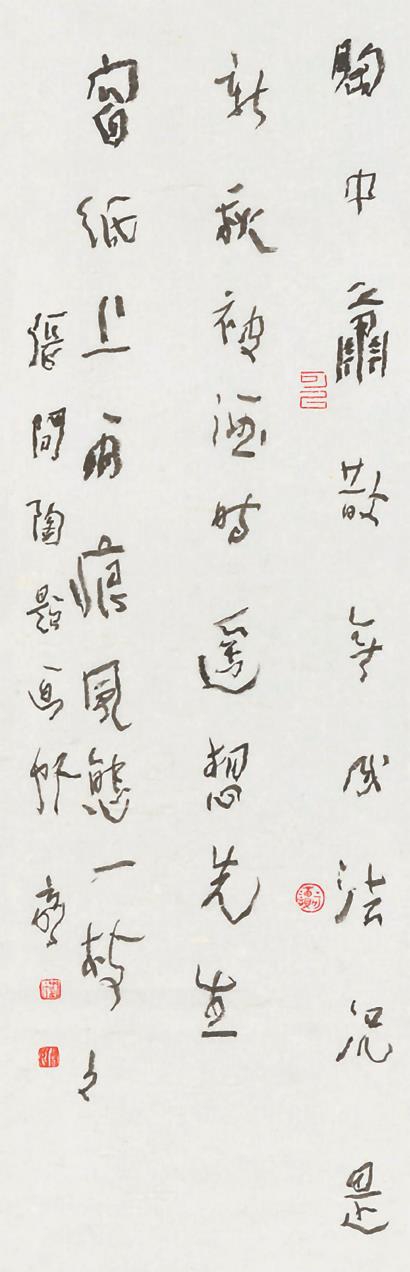 胸中蕭散無成法況是
新秋被酒時遥想先生
窗紙上雨痕風態一枝々
張問陶題画竹